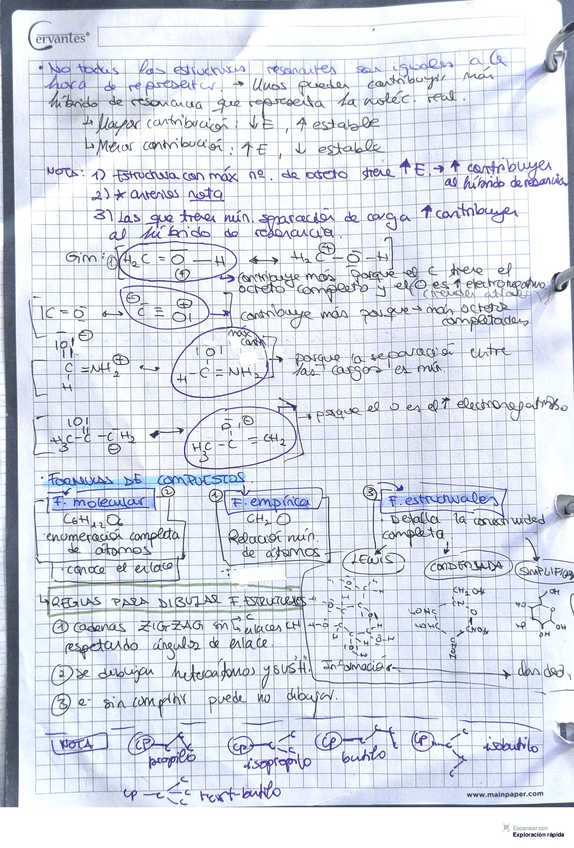 Cervantes
· No todas las estructuras resonantes son iguales a la
hora de representar. → Unas pueden contribuir más
híbrido de resonancia que representa la moléc. real.
↳ Mayor contribución: ↓E, ↑ estable
↳ Menor contribución: ↑E, ↓ estable
NOTA: 1) Estructura con máx nº. de octeto tiene ↑E. → ↑ contribuyen
al híbrido de resonancia
2) * anterios nota
3) Las que tienen mín. separación de carga ↑ contribuyen
al híbrido de resonancia.
H₂C = O — H ↔ H₂C — O — H
↳ contribuye más porque el C tiene el
octeto completo y el O es ↑ electronegativo
|C = O ↔ C ≡ O| → contribuye más porque → más octetos
completados
C = NH₂ ↔ H — C = NH₂ → porque la separación entre
las cargas es mín.
H
H₃C — C — CH₂ ↔ H₃C — C = CH₂ → porque el O es el ↑ electronegativo
· FORMULAS DE COMPUESTOS.
② F. molecular
C₆H₁₂O₆
enumeración completa
de átomos
· conoce el enlace
① F. empírica
CH₂O
Relación mín.
de átomos
③ F. estructurales
Detalla la conectividad
completa
LEWIS
CONDENSADA
↳ REGLAS PARA DIBUJAR F. ESTRUCTURALES
① cadenas ZIGZAG sin enlaces CH
respetando ángulos de enlace.
② se dibujan heteroátomos y sus H.
③ e⁻ sin compartir puede no dibujar.
Información
NOTA
CP propilo
CP isopropilo
CP butilo
CP isobutilo
CP tert-butilo
www.mainpaper.com
Escanear con
Exploración rápida